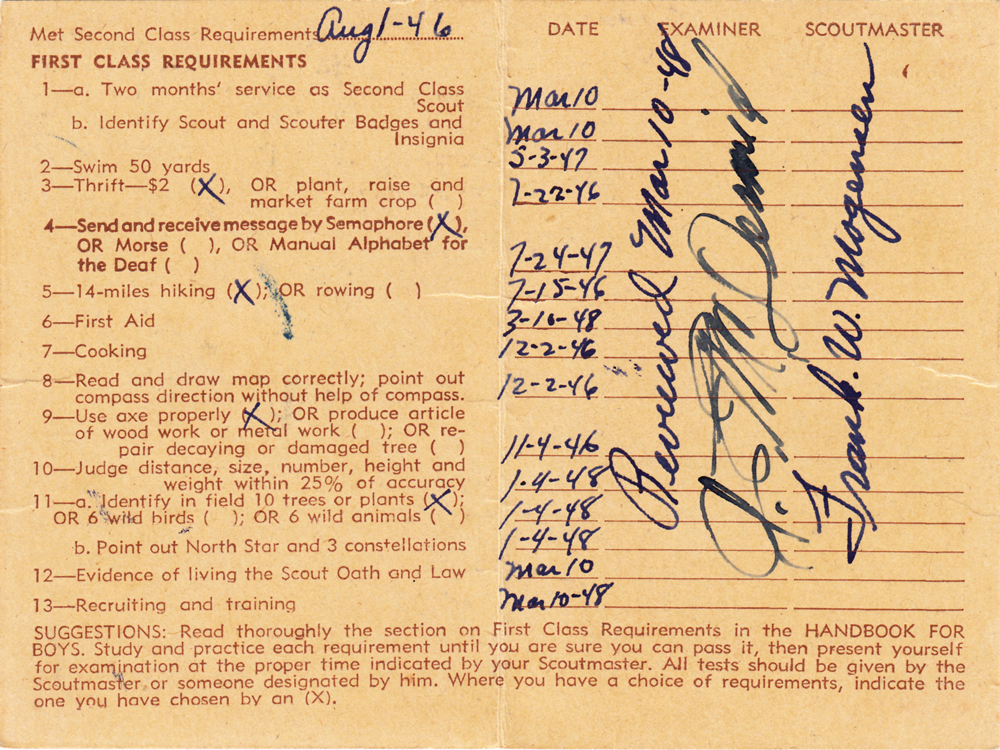 Met Second Class Requirements Aug 1-46
FIRST CLASS REQUIREMENTS
1—a. Two months' service as Second Class
Scout
b. Identify Scout and Scouter Badges and
Insignia
2—Swim 50 yards
3—Thrift—$2 (X), OR plant, raise and
market farm crop ( )
4—Send and receive message by Semaphore (X),
OR Morse ( ), OR Manual Alphabet for
the Deaf ( )
5—14-miles hiking (X); OR rowing ( )
6—First Aid
7—Cooking
8—Read and draw map correctly; point out
compass direction without help of compass.
9—Use axe properly (X); OR produce article
of wood work or metal work ( ); OR re-
pair decaying or damaged tree ( )
10—Judge distance, size, number, height and
weight within 25% of accuracy
11—a. Identify in field 10 trees or plants (X);
OR 6 wild birds ( ); OR 6 wild animals ( )
b. Point out North Star and 3 constellations
12—Evidence of living the Scout Oath and Law
13—Recruiting and training
DATE EXAMINER SCOUTMASTER
Mar 10
Mar 10
5-3-47
7-22-46
7-24-47
7-15-46
3-10-48
12-2-46
12-2-46
11-4-46
1-4-48
1-4-48
1-4-48
Mar 10
Mar 10-48
Reviewed Mar 10-48
Frank W. Mogensen
SUGGESTIONS: Read thoroughly the section on First Class Requirements in the HANDBOOK FOR
BOYS. Study and practice each requirement until you are sure you can pass it, then present yourself
for examination at the proper time indicated by your Scoutmaster. All tests should be given by the
Scoutmaster or someone designated by him. Where you have a choice of requirements, indicate the
one you have chosen by an (X).